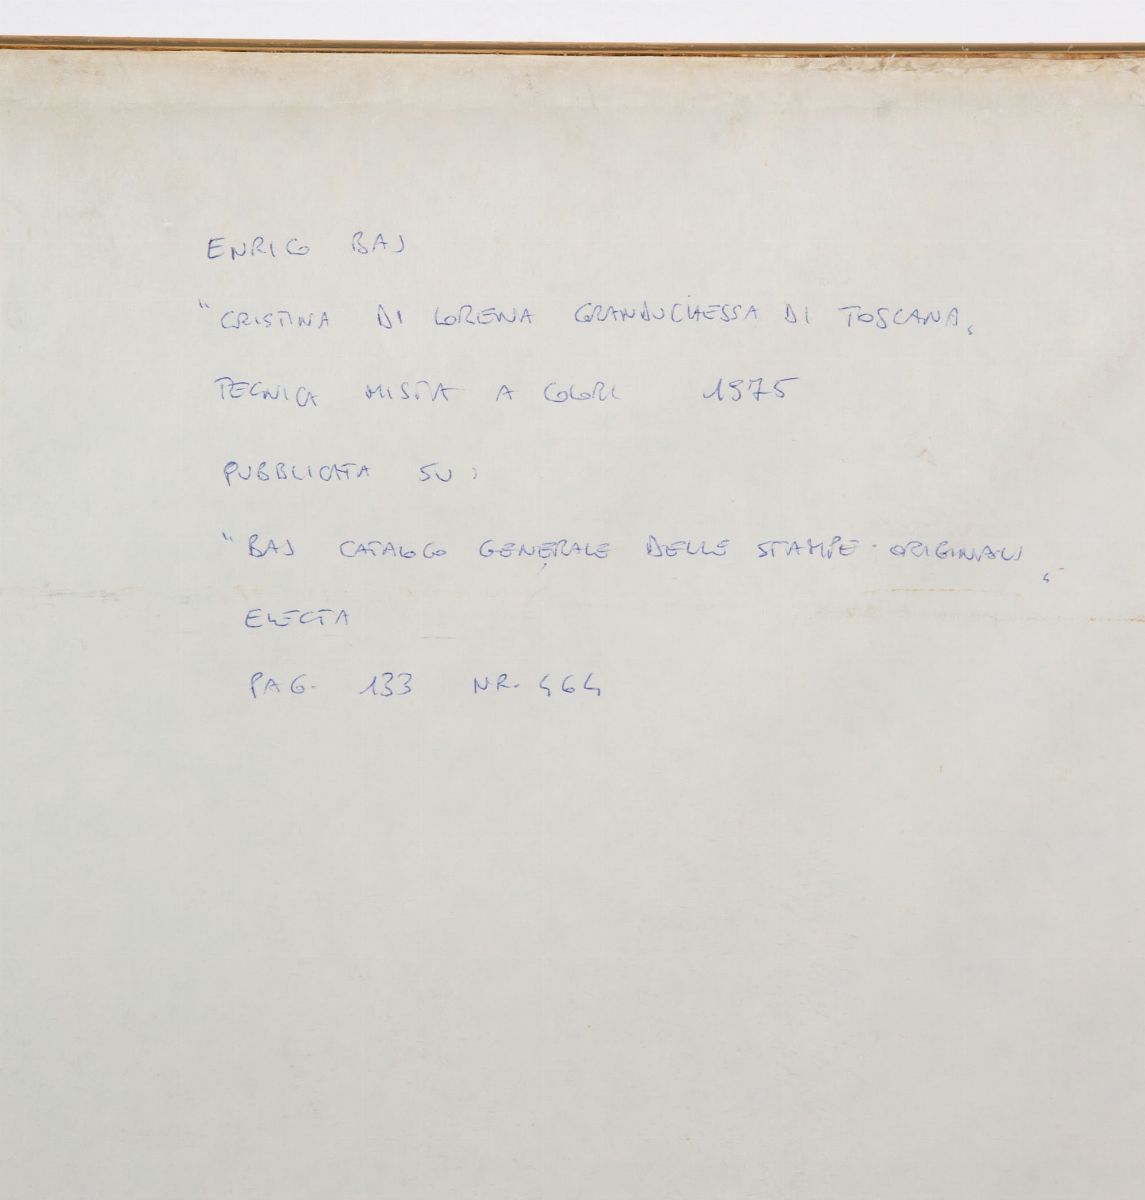 ENRICO BAJ
"CRISTINA DI LORENA GRANDUCHESSA DI TOSCANA„
TECNICA MISTA A COLORI 1975
PUBBLICATA SU:
"BAJ CATALOGO GENERALE DELLE STAMPE ORIGINALI„
ELECTA
PAG. 133 NR. 464